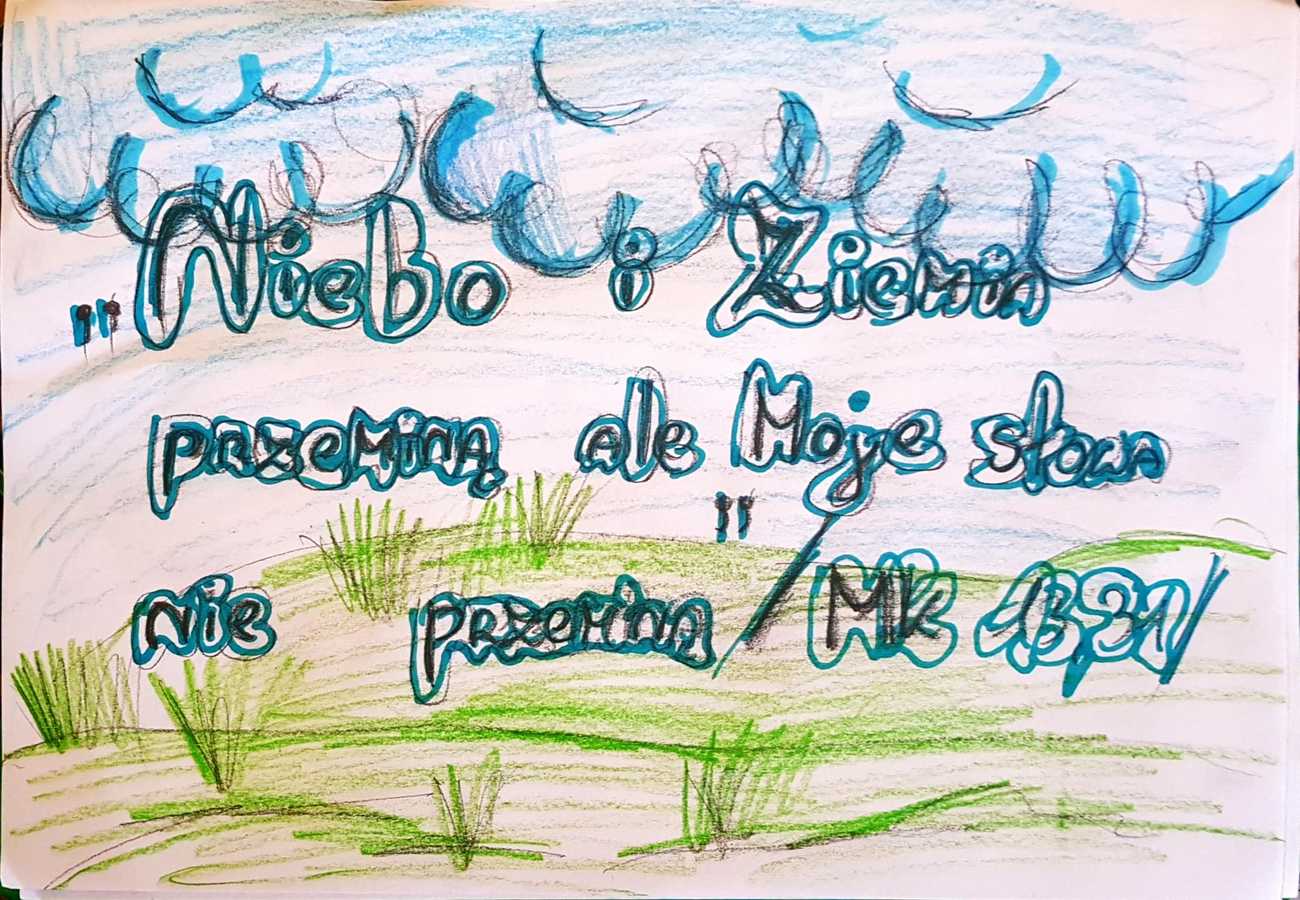 „Niebo i Ziemia
przeminą ale Moje słowa
nie przeminą" /Mk 13,31/